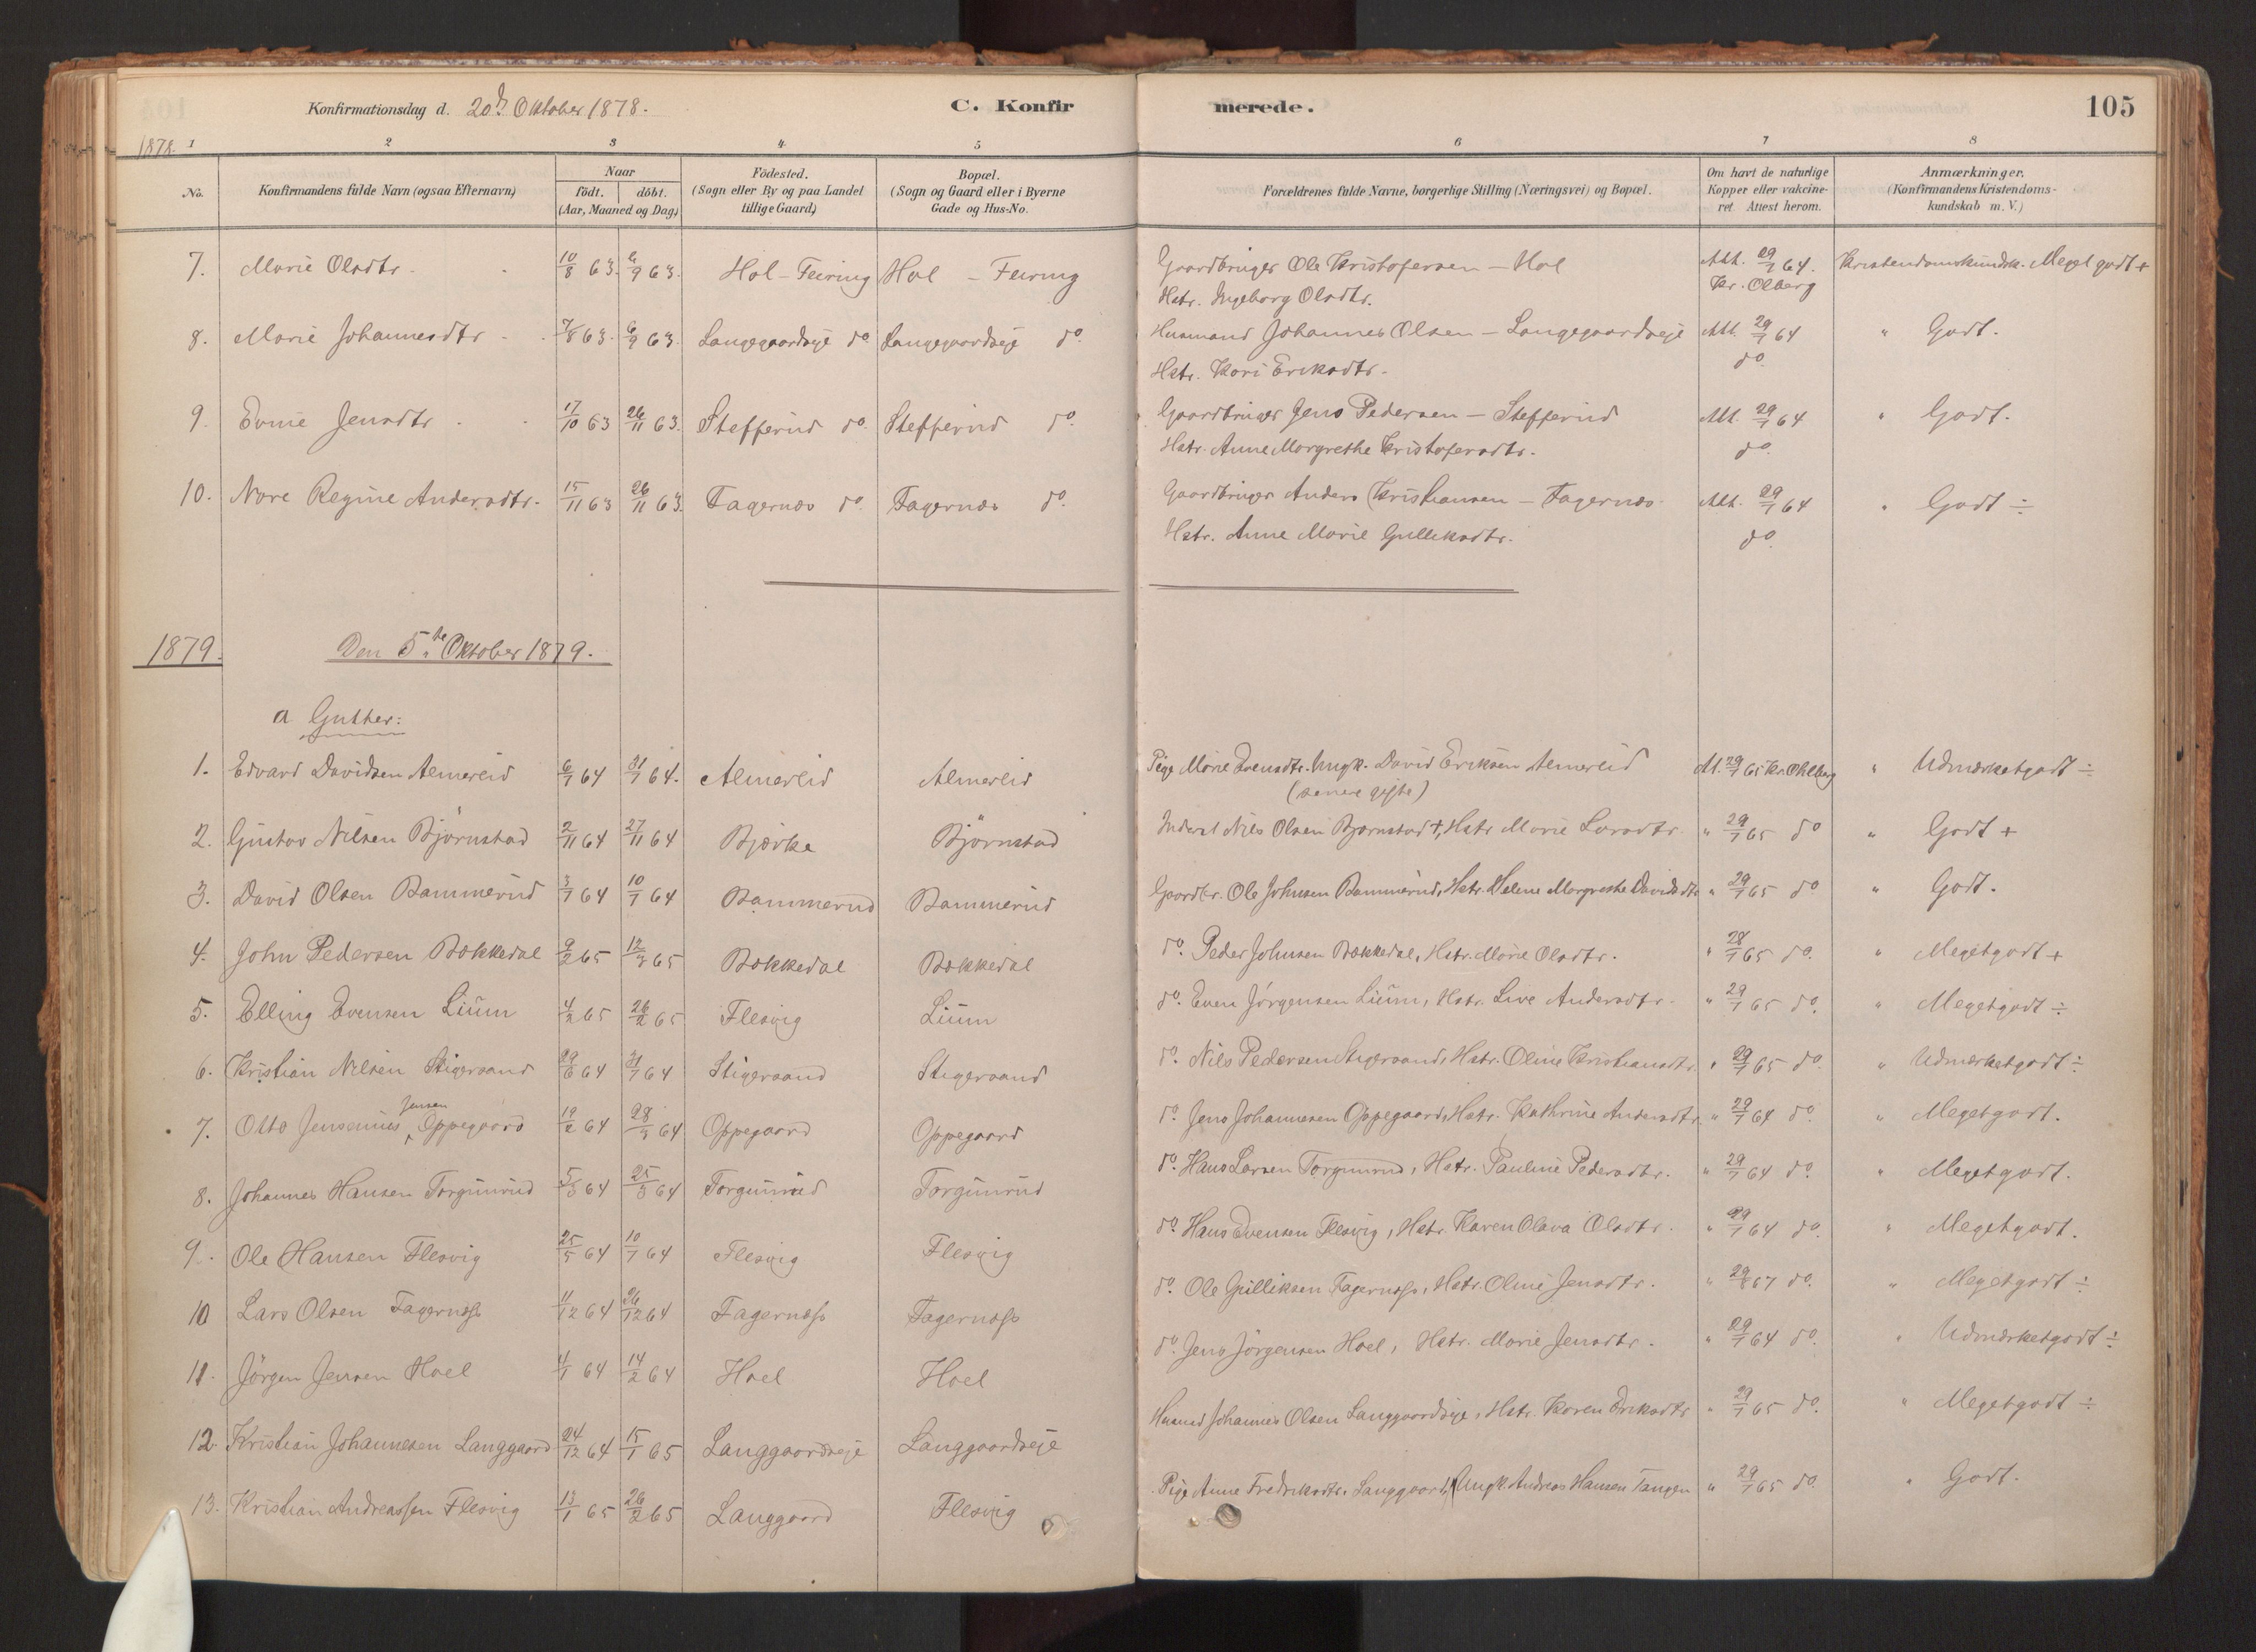 Konfirmationsdag d. 20de Oktober 1878. C. Konfirmerede. 105
1878. 1 2 3 4 5 6 7 8
No. Konfirmandens fulde Navn (ogsaa Efternavn) Naar födt. döbt. (Aar, Maaned og Dag.) Födested. (Sogn eller By og paa Landet tillige Gaard.) Bopæl. (Sogn og Gaard eller i Byerne Gade og Hus-No. Forældrenes fulde Navne, borgerlige Stilling (Næringsvei) og Bopæl. Om havt de naturlige Kopper eller vakcineret. Attest herom. Anmærkninger. (Konfirmandens Kristendomskundskab m. V.)
7. Marie Olsdtr. 10/8 63. 6/9 63. Hol - Feiring Hol - Feiring Gaardbruger Ole Kristofersen - Hol Att. 29/7 64. Kristendomskundsk. Meget godt +
Hstr. Ingeborg Olsdtr. Kr. Olberg
8. Marie Johannesdtr 7/8 63. 6/9 63. Langegaardseje do Langegaardseje do. Husmand Johannes Olsen - Langegaardseje Att. 29/7 64 " Godt.
Hstr. Kari Eriksdtr. do.
9. Evine Jensdtr 17/10 63 26/11 63. Stefferud do. Stefferud do. Gaardbruger Jens Pedersen - Stefferud Att. 29/7 64 " Godt.
Hstr. Anne Margrethe Kristofersdtr. do.
10. Nare Regine Andersdtr. 15/11 63 26/11 63. Fagernæs do. Fagernæs do. Gaardbruger Anders Kristiansen - Fagernæs Att. 29/7 64 " Godt ÷
Hstr. Anne Marie Gulliksdtr. do.
1879. Den 5te Oktober 1879.
a Gutter:
1. Edvard Davidsen Almerlid 6/1 64 31/7 64. Almerlid Almerlid Pige Marie Evensdtr. Ungk. David Eriksen Almerlid At. 29/7 65 Kr. Ohlberg " Udmærketgodt ÷
(senere gifte)
2. Gustav Nilsen Björnstad 2/11 64 27/11 64 Bjørke Björnstad Inderst Nils Olsen Bjørnstad +, Hstr Marie Larsdtr. " 29/7 65 do " Godt +
3. David Olsen Bammerud 3/1 64 10/7 64 Bammerud Bammerud Gaardbr. Ole Johnsen Bammerud, Hstr. Helene Margrethe Davidsdtr " 29/7 65 do " Godt.
4. John Pedersen Bækkedal 9/2 65 12/3 65 Bækkedal Bækkedal do. Peder Johnsen Bækkedal, Hstr. Marie Olsdtr. " 28/7 65 do. " Megetgodt +
5. Elling Evensen Lium 4/2 65 26/2 65 Flesvig Lium do. Even Jörgensen Lium, Hstr. Live Andersdtr. " 29/7 65 do. " Megetgodt ÷
6. Kristian Nilsen Stigersand 29/6 64 31/7 64 Stigersand Stigersand do. Nils Pedersen Stigersand, Hstr. Oline Kristiansdtr. " 29/7 65 do. " Udmærketgodt ÷
7. Otto Jensenius Jensen Oppegaard 19/2 64 28/3 64 Oppegaard Oppegaard do. Jens Johannesen Oppegaard, Hstr. Kathrine Andersdtr. " 29/7 64 do. " Megetgodt.
8. Johannes Hansen Torgunrud 5/5 64 25/5 64 Torgunrud Torgunrud do. Hans Larsen Torgunrud, Hstr. Pauline Pedersdtr. " 29/7 64 do. " Megetgodt.
9. Ole Hansen Flesvig 25/5 64 10/7 64 Flesvig Flesvig do. Hans Evensen Flesvig, Hstr. Karen Olava Olsdtr. " 29/7 64 do. " Megetgodt.
10 Lars Olsen Fagernæss 11/12 64 26/12 64 Fagernæss Fagernæss do. Ole Gulliksen Fagernæss, Hstr. Oline Jensdtr. " 29/8 67 do. " Megetgodt ÷
11. Jörgen Jensen Hoel 4/1 64 14/2 64 Hoel Hoel do. Jens Jörgensen Hoel, Hstr. Marie Jensdtr. " 29/7 64 do. " Udmærketgodt ÷
12. Kristian Johannesen Langgaard 24/12 64 15/1 65 Langgaardseje Langgaardseje Husmd Johannes Olsen Langgaardseje, Hstr. Karen Eriksdtr " 29/7 65 do. " Megetgodt ÷
13. Kristian Andreassen Flesvig 13/1 65 26/2 65 Langgaard Flesvig Pige Anne Fredriksdtr. Langgaard, Ungk. Andreas Hansen Tangen " 29/7 65 do. " Godt.